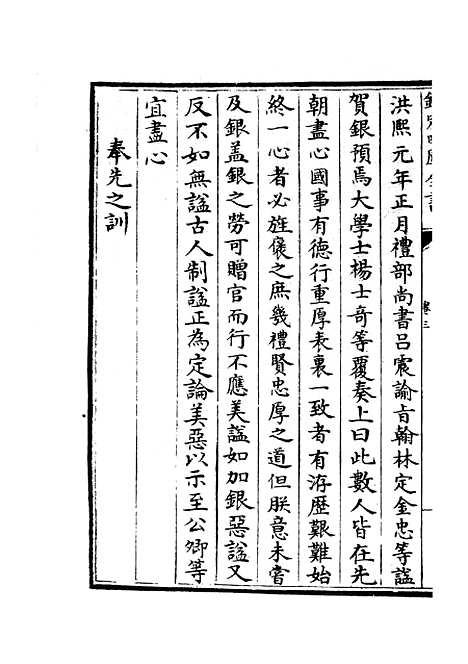 卷三
洪熙元年正月禮部尚書呂震諭㫖翰林定金忠等諡
賀銀預焉大學士楊士竒等覆奏上曰此數人皆在先
朝盡心國事有徳行重厚表裏一致者有洊歴艱難始
終一心者必旌褒之庶幾禮賢忠厚之道但朕意未嘗
及銀葢銀之勞可贈官而行不應美諡如加銀惡諡又
反不如無諡古人制諡正為定論美惡以示至公卿等
宜盡心
奉先之訓